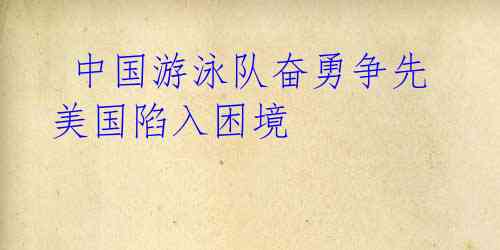 中国游泳队奋勇争先
美国陷入困境